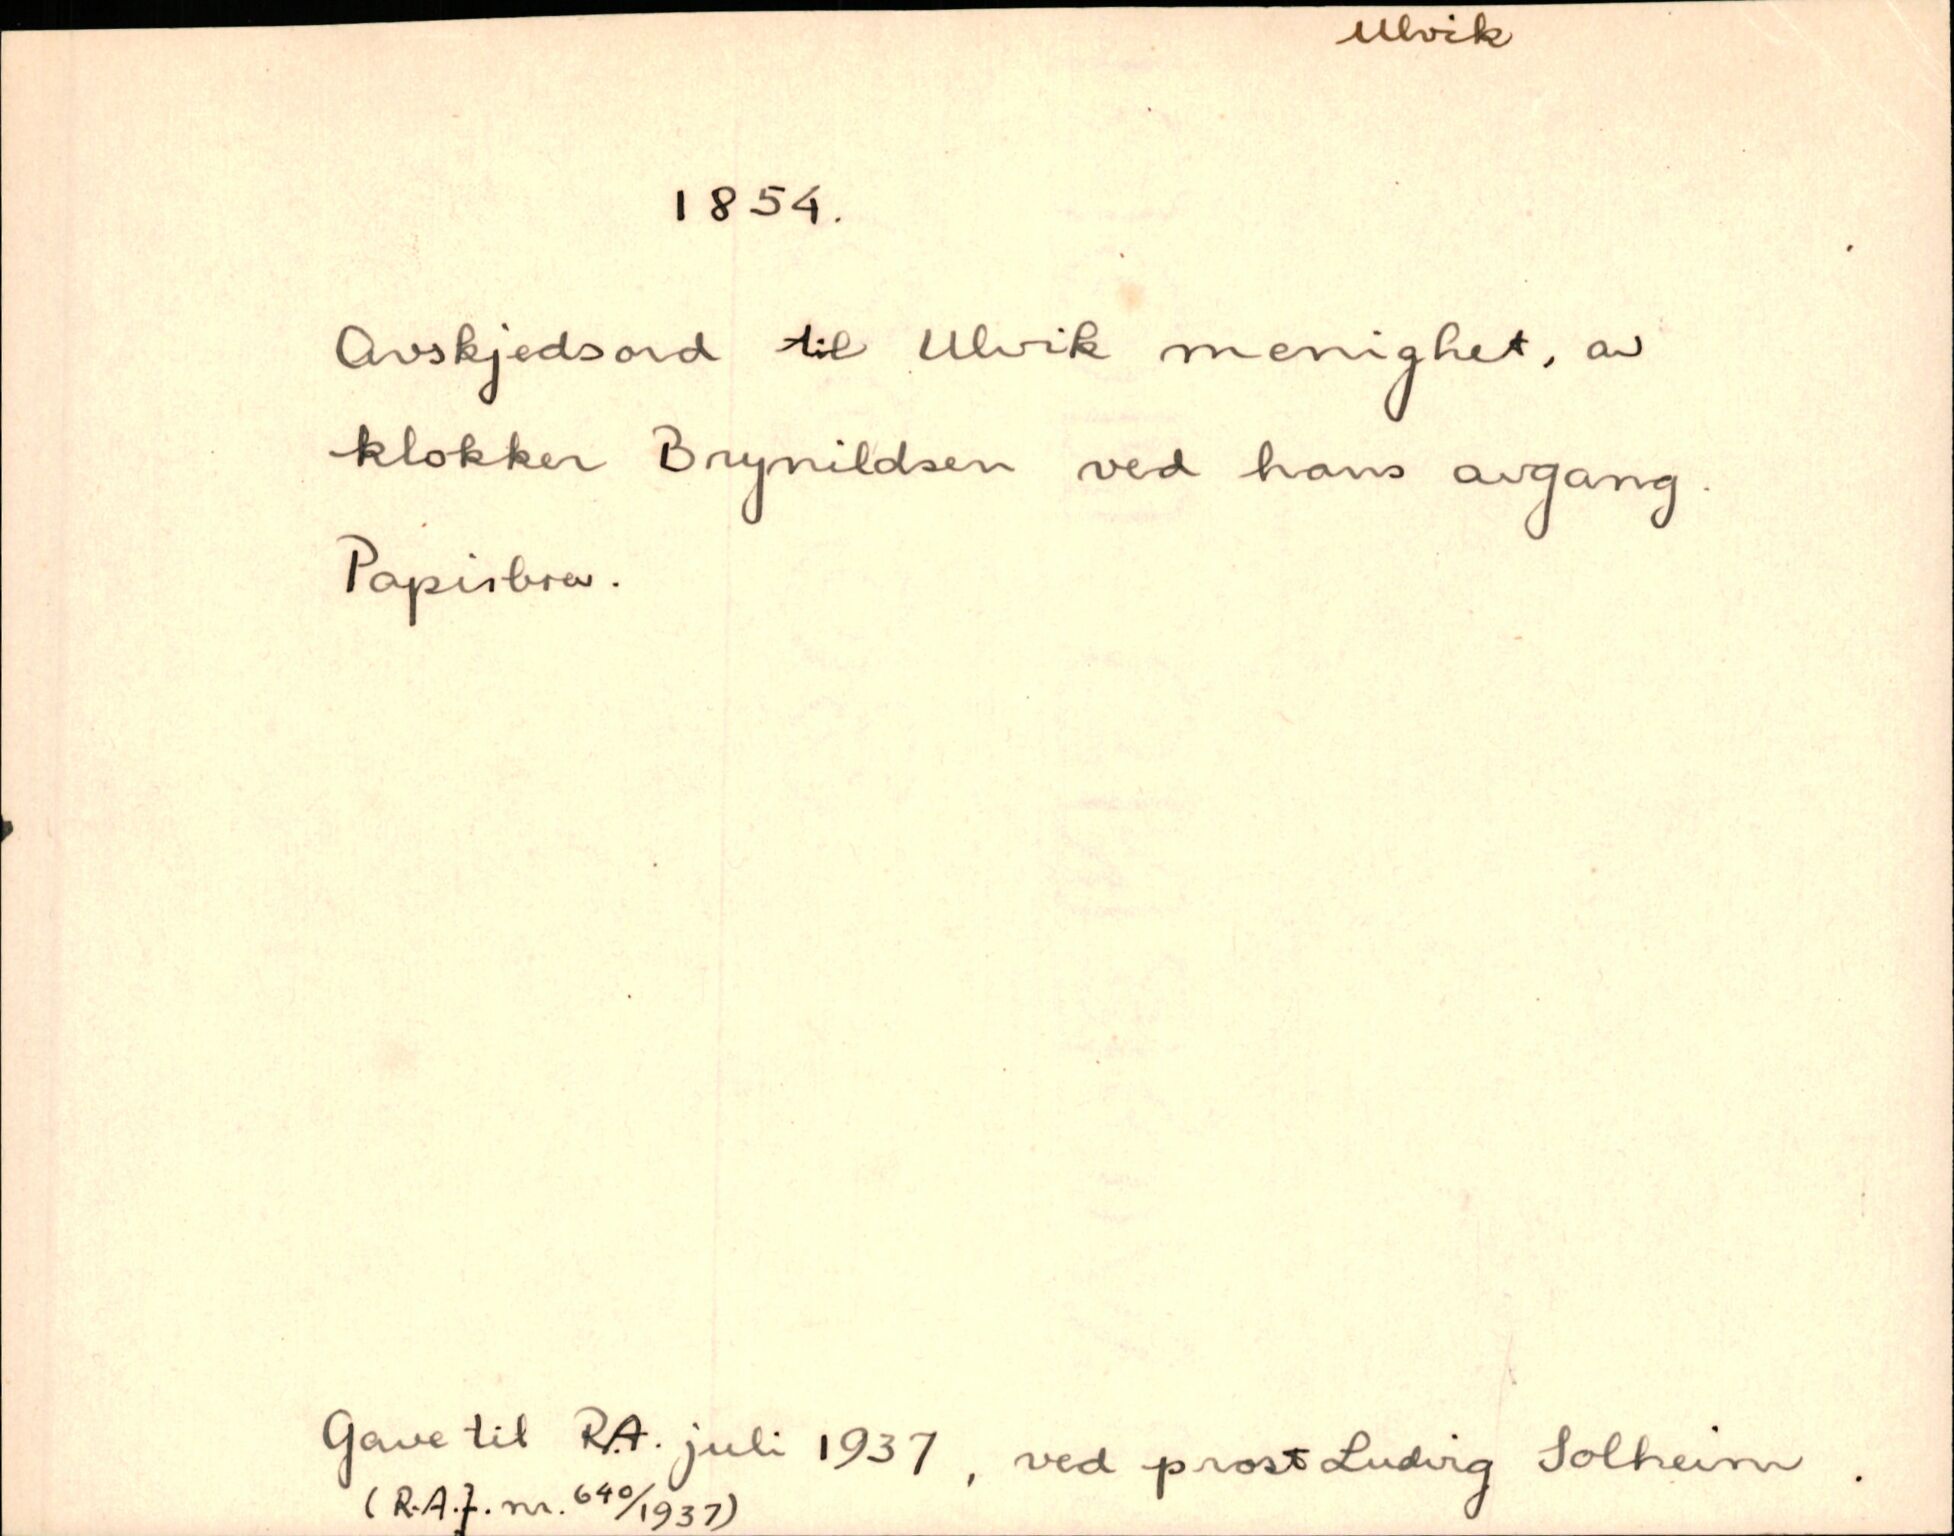 Ulvik
1854.
Avskjedsord til Ulvik menighet, av
klokker Brynildsen ved hans avgang.
Papirbrev.
Gave til R.A. juli 1937, ved prost Ludvig Solheim.
(R.A.J. nr. 640/1937)